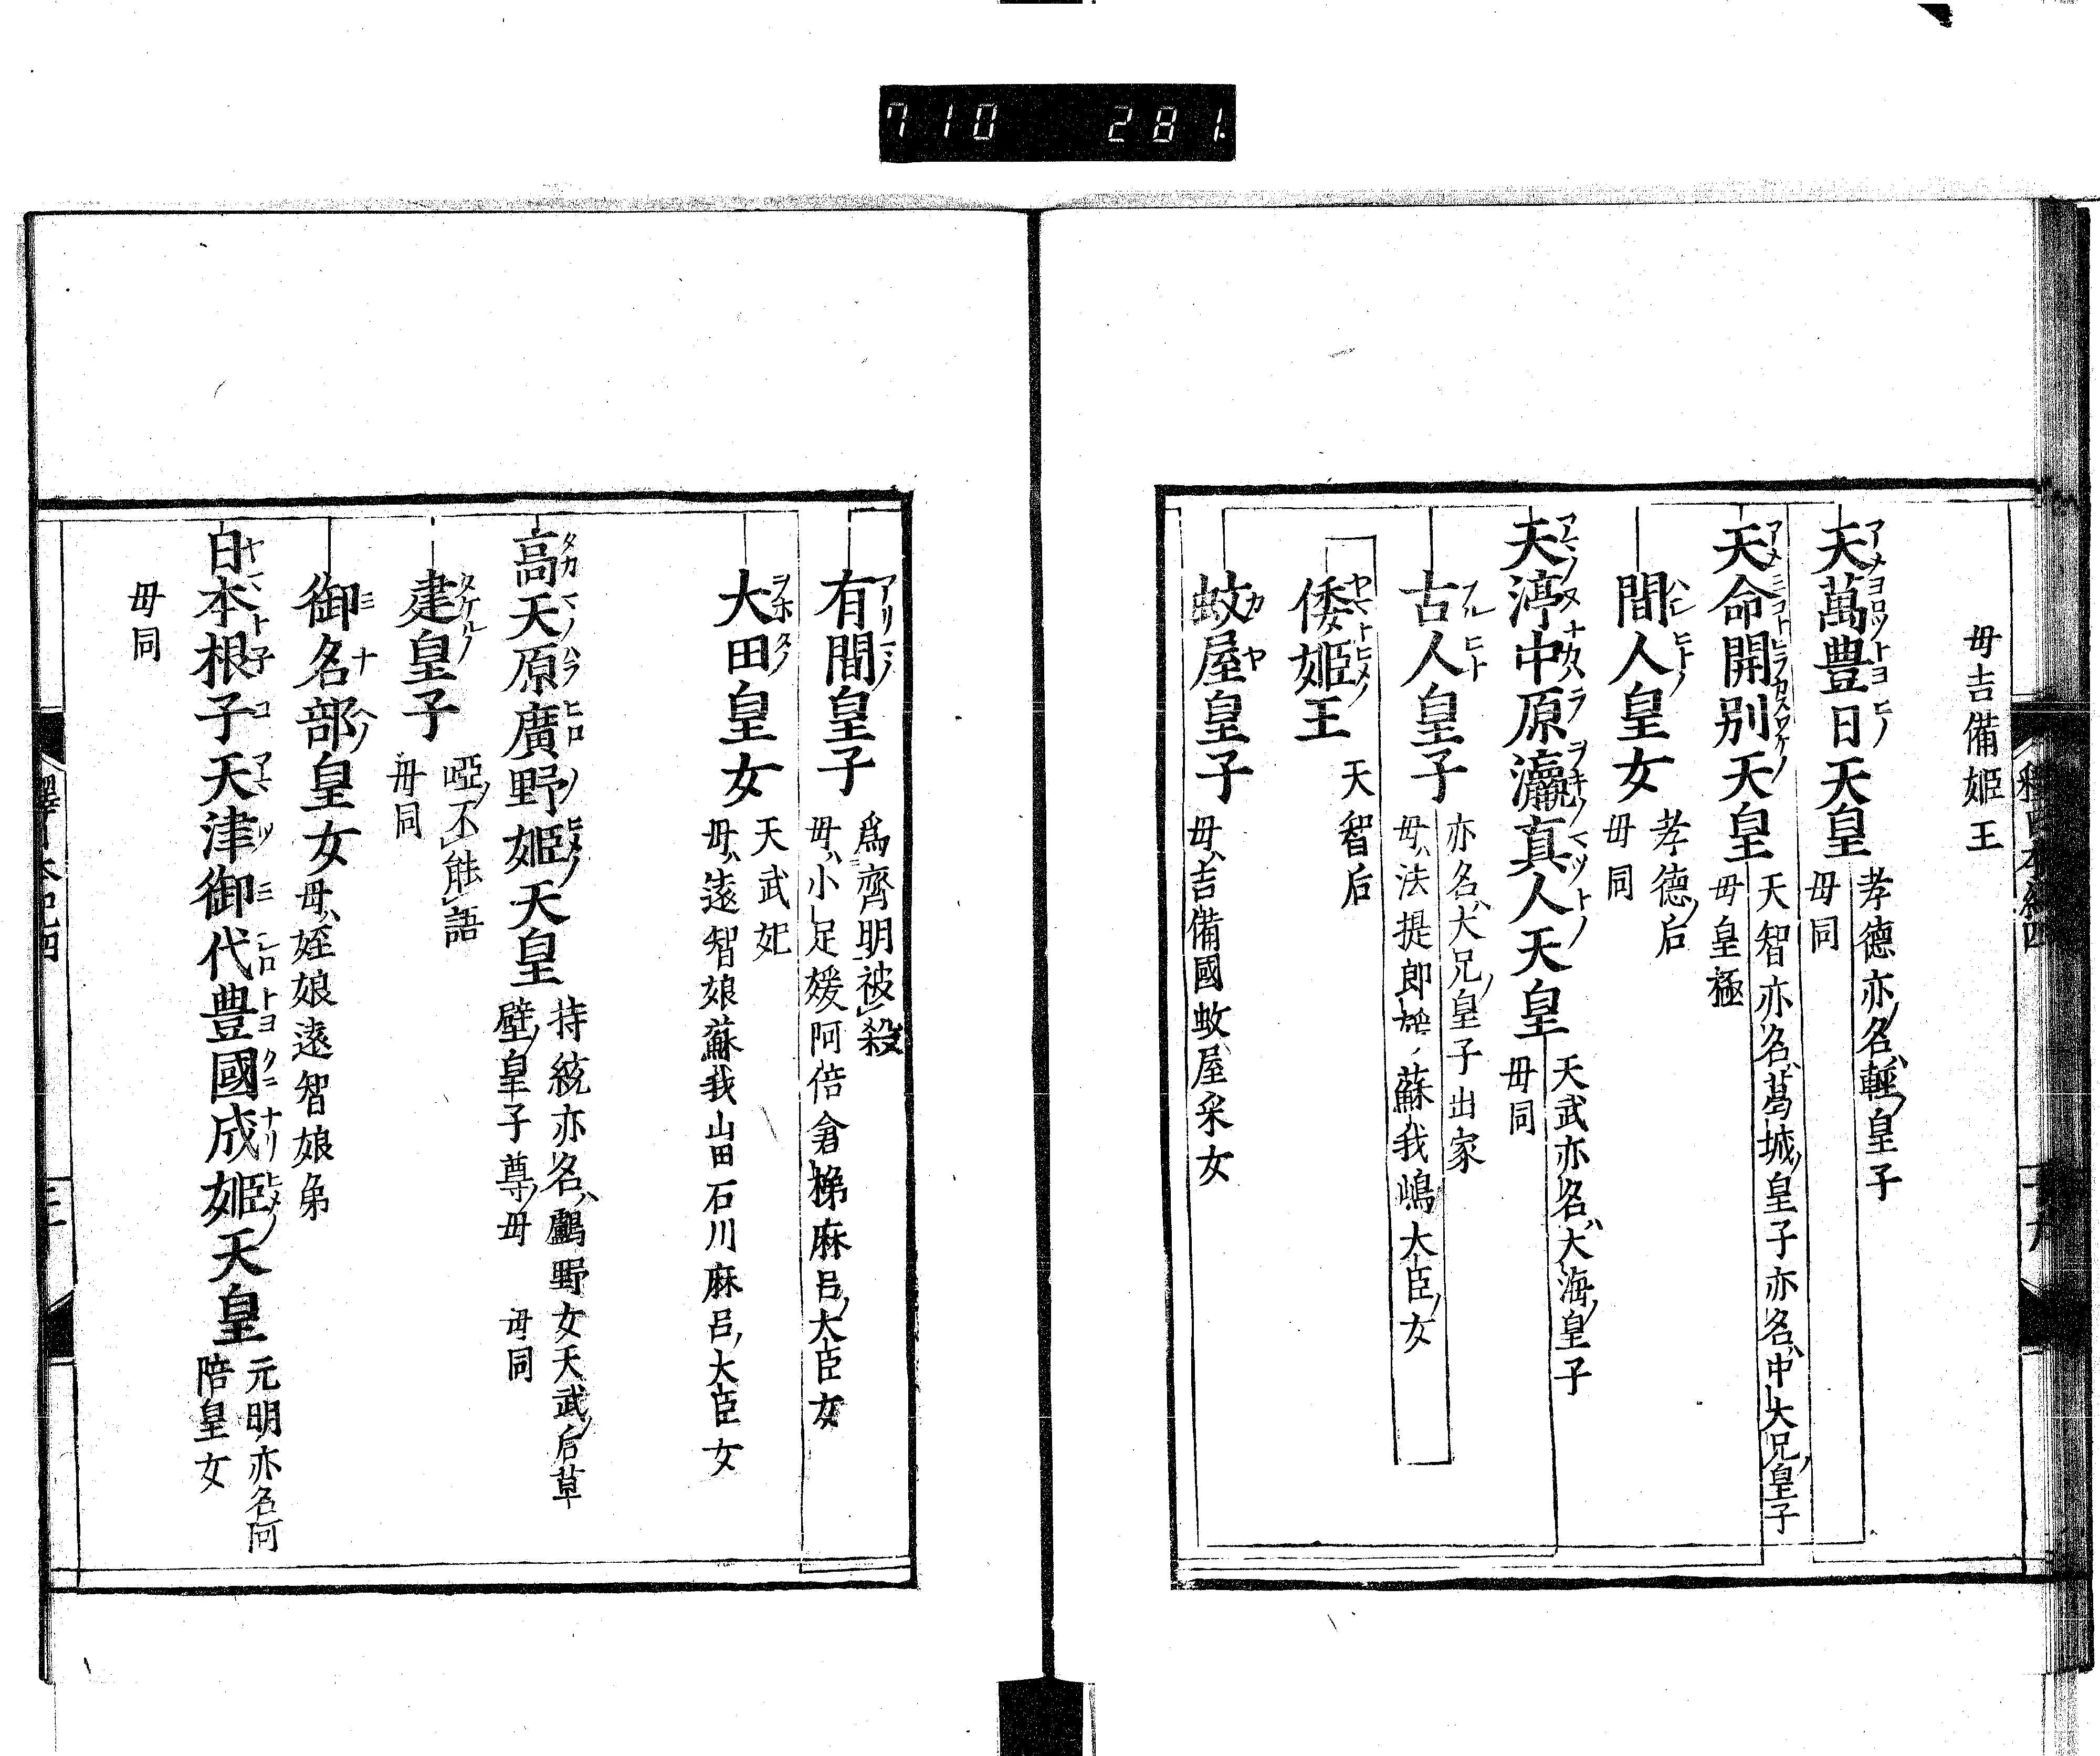 710 281
母吉備姫王
天萬豊日天皇
孝德亦名輕皇子
母同
天命開别天皇
天智亦名葛城皇子亦名中大兄皇子
母皇極
間人皇女
孝德后
母同
天渟中原瀛真人天皇
天武亦名大海皇子
母同
古人皇子
亦名大兄皇子出家
母法提郎媛蘇我嶋大臣女
倭姫王
天智后
蚊屋皇子
母吉備國蚊屋采女
有間皇子
爲齊明被殺
母小足媛阿倍倉梯麻呂大臣女
大田皇女
天武妃
母遠智娘蘇我山田石川麻呂大臣女
高天原廣野姫天皇
持統亦名鸕野女天武后草
壁皇子尊母 母同
建皇子
啞不能語
母同
御名部皇女
母姪娘遠智娘弟
日本根子天津御代豊國成姫天皇
元明亦名阿
陪皇女
母同